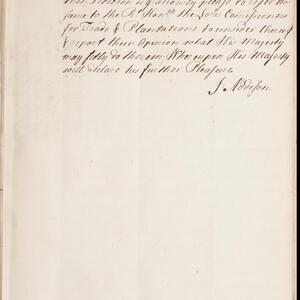 this Petition is graciously pleas'd to refer the
same to the Rt. Honble. the Lords Commissioners
for Trade & Plantations to consider thereof
& report their Opinion what His Majesty
may fitly do therein. Whereupon His Majesty
will declare his further Pleasure.
J. Addison.